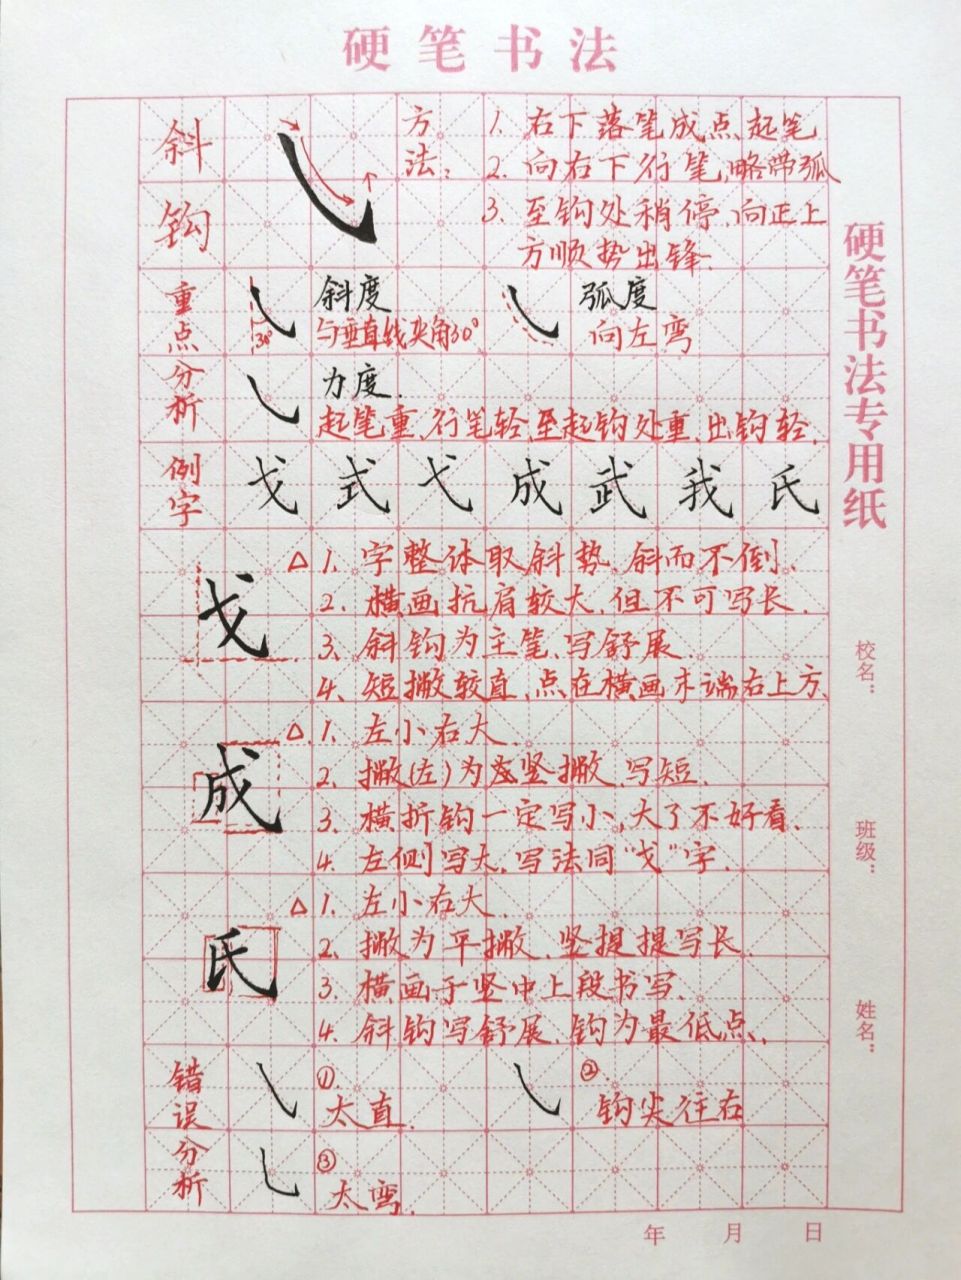 硬笔书法
斜钩
方法：
1. 右下落笔成点起笔
2. 向右下行笔,略带弧
3. 至钩处稍停,向正上
方顺势出锋.
重点分析
30°
斜度
与垂直线夹角30°
弧度
向左弯
力度.
起笔重、行笔轻、至起钩处重、出钩轻.
例字
戈 式 弋 成 武 我 氏
戈
△ 1. 字整体取斜势、斜而不倒.
2. 横画抗肩较大、但不可写长.
3. 斜钩为主笔、写舒展.
4. 短撇较直、点在横画末端右上方.
成
△. 1. 左小右大.
2. 撇(左)为竖撇、写短.
3. 横折钩一定写小,大了不好看.
4. 左侧写大、写法同“戈”字.
氏
△ 1. 左小右大.
2. 撇为平撇、竖提提写长.
3. 横画于竖中上段书写.
4. 斜钩写舒展、钩为最低点.
错误分析
①.
太直.
②
钩尖往右
③
太弯.
硬笔书法专用纸
校名：
班级：
姓名：
年 月 日